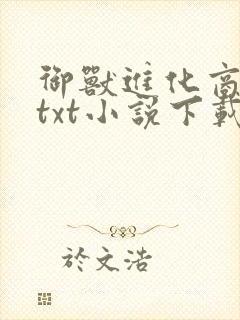 御獸進化商
txt小說下載
於文浩